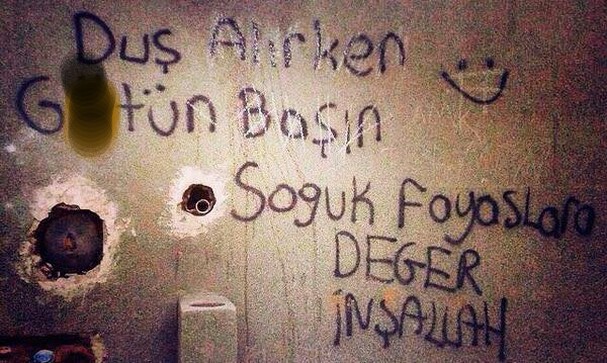 Duş Alırken
G tün Başın
Soguk fayaslara
DEGER
İNŞALLAH